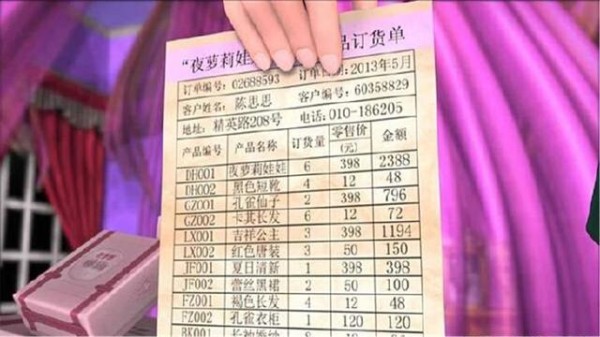 “夜萝莉娃 品订货单
订单编号：02688593 订单日期：2013年5月
客户姓名：陈思思 客户编号：60358829
地址：精英路208号 电话：010-186205
产品编号 产品名称 订货量 零售价(元) 金额
DH001 夜萝莉娃娃 6 398 2388
DH002 黑色短靴 4 12 48
GZ001 孔雀仙子 2 398 796
GZ002 卡其长发 6 12 72
LX001 吉祥公主 3 398 1194
LX002 红色唐装 3 50 150
JF001 夏日清新 1 398 398
JF002 蕾丝黑裙 2 50 100
FZ001 褐色长发 4 12 48
FZ002 孔雀衣柜 1 120 120